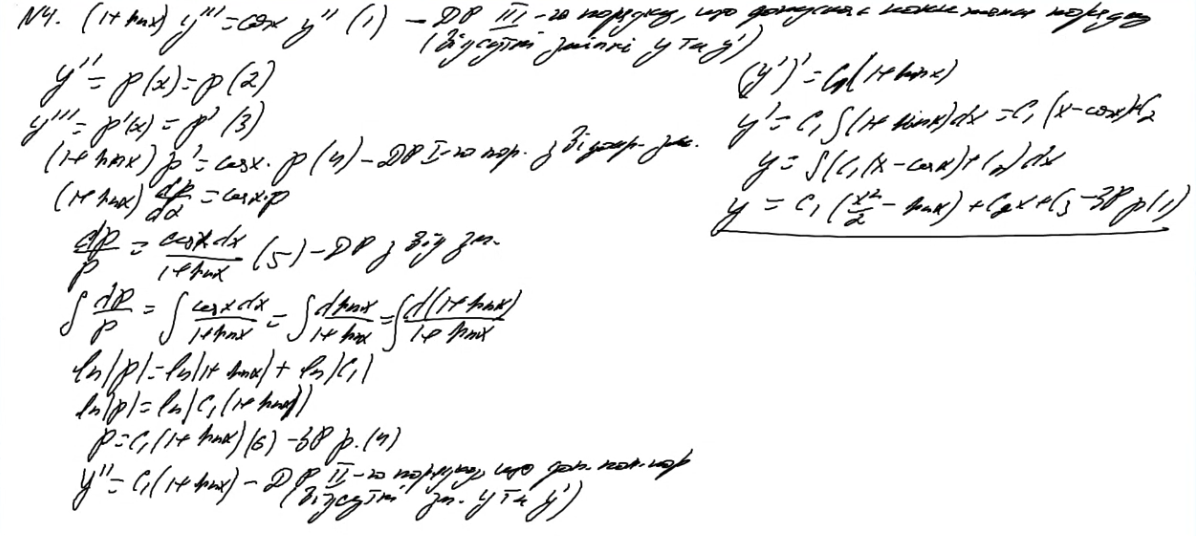 N4. (1+sinx) y''' = cosx y'' (1) – ДР III-го порядку, що допускає пониження порядку
(відсутні змінні y та y')
y'' = p(x) = p (2)
y''' = p'(x) = p' (3)
(1+sinx) p' = cosx · p (4) – ДР I-го пор. з відокр. зм.
(1+sinx) dp/dx = cosx·p
dp/p = cosx dx/(1+sinx) (5) – ДР з від зм.
∫ dp/p = ∫ cosx dx/(1+sinx) = ∫ dsinx/(1+sinx) = ∫ d(1+sinx)/(1+sinx)
ln|p| = ln|1+sinx| + ln|C₁|
ln|p| = ln|C₁(1+sinx)|
p = C₁(1+sinx) (6) – ЗР р. (4)
y'' = C₁(1+sinx) – ДР II-го порядку, що доп. пон. пор
(відсутні зм. y та y')
(y')' = C₁(1+sinx)
y' = C₁ ∫(1+sinx)dx = C₁(x-cosx)+C₂
y = ∫(C₁(x-cosx)+C₂)dx
y = C₁(x²/2 - sinx) + C₂x + C₃ – ЗР р (1)